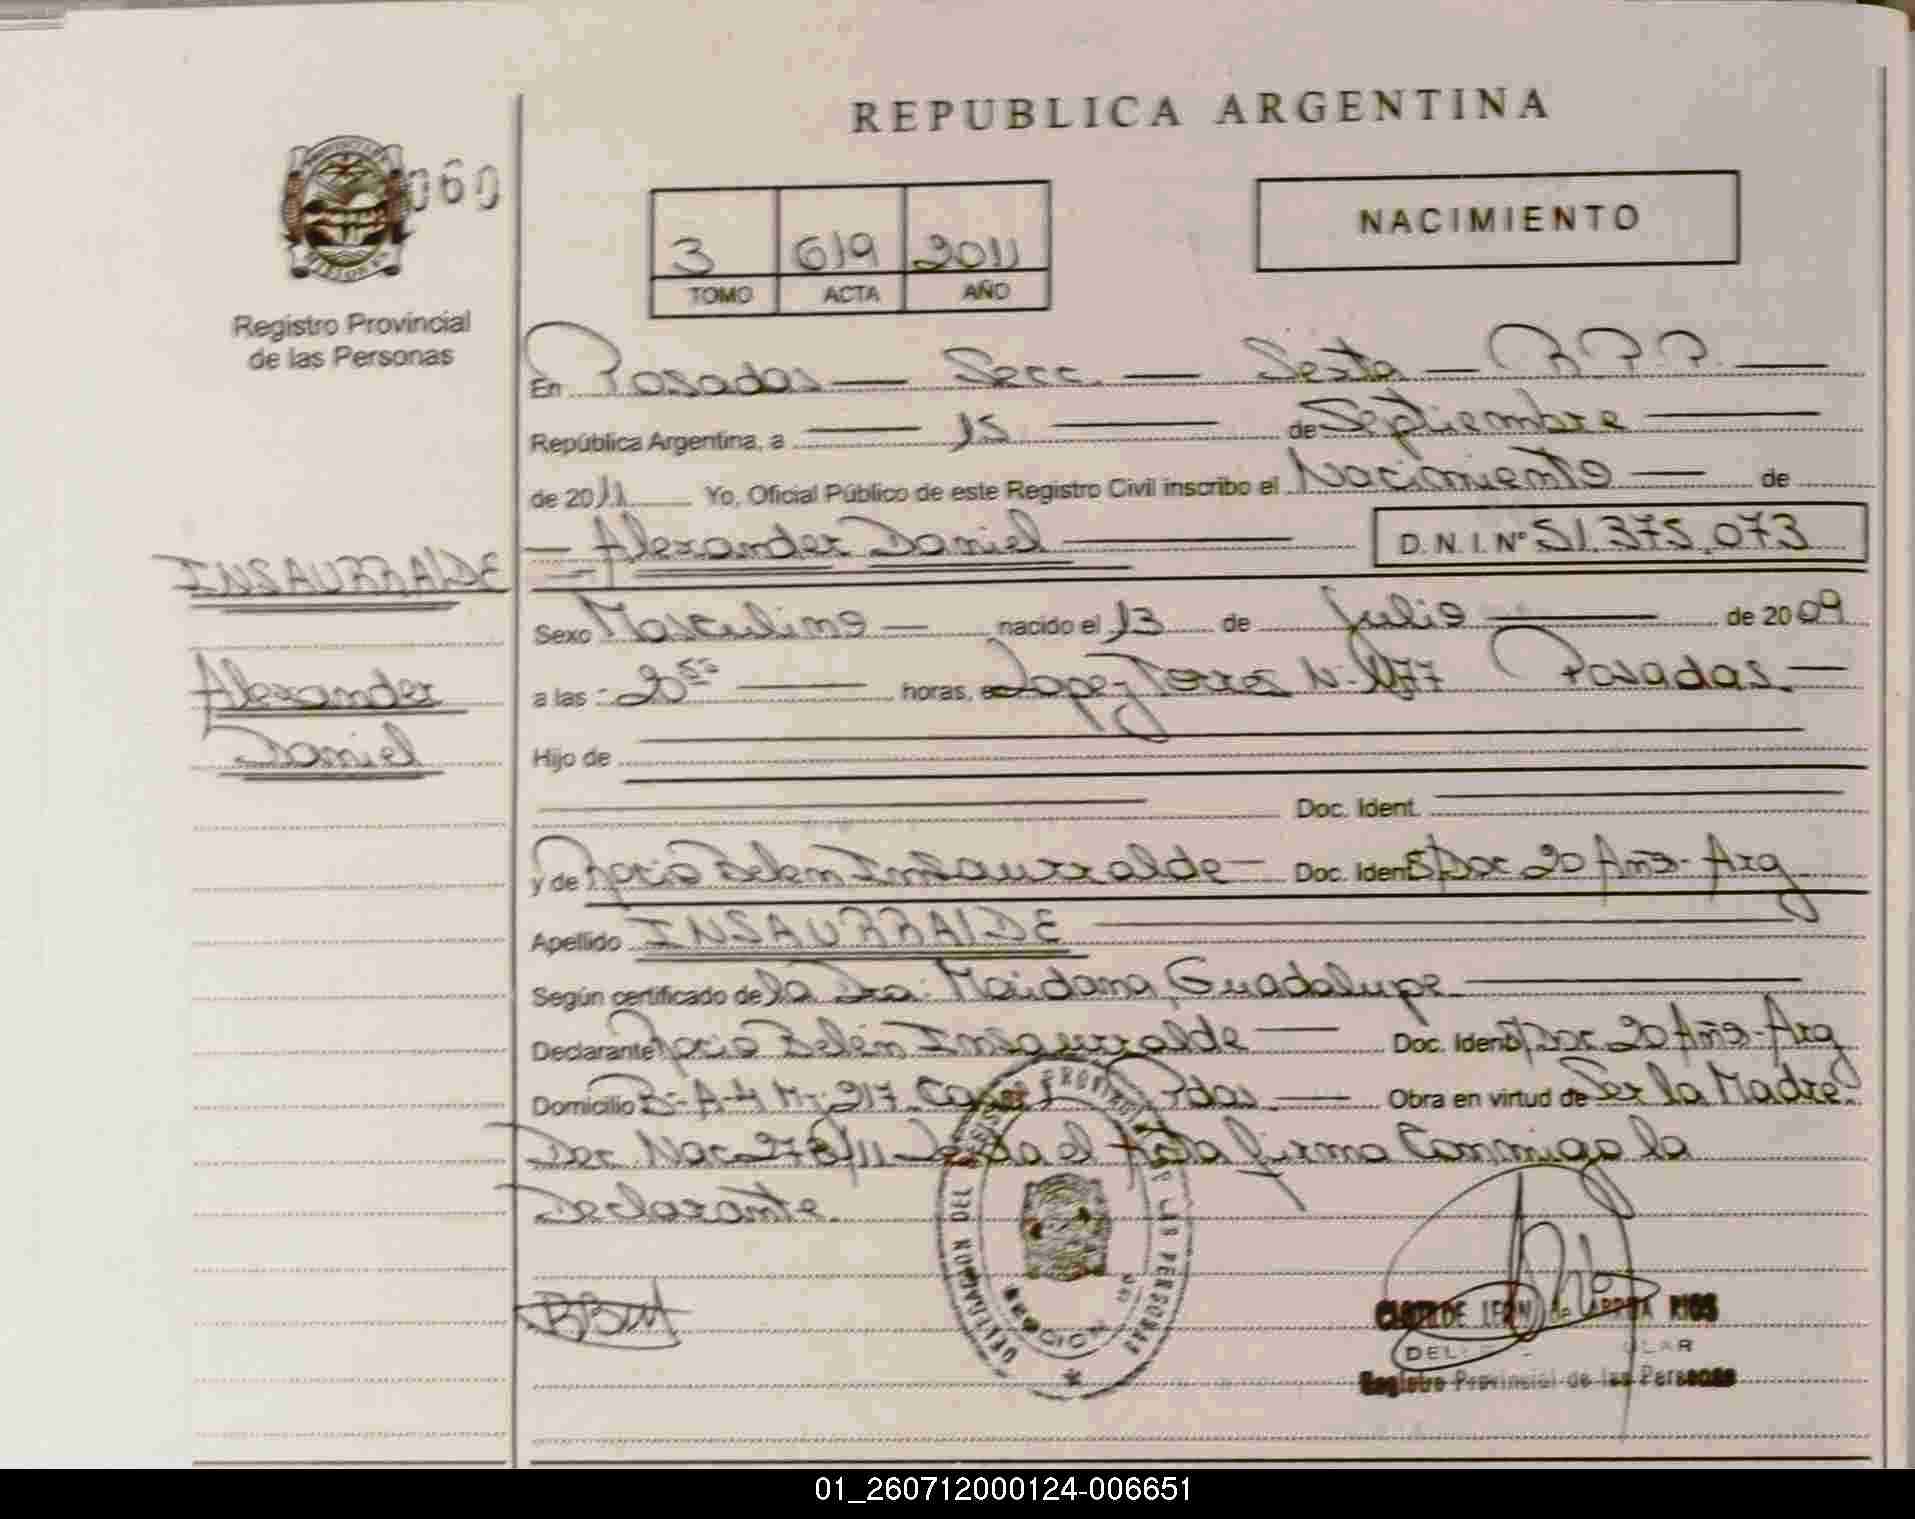 REPUBLICA ARGENTINA
060
NACIMIENTO
3 619 2011
TOMO ACTA AÑO
Registro Provincial
de las Personas
En Posadas — Secc. — Sexta — R.P.P. —
República Argentina, a — 15 — de Septiembre —
de 2011 Yo, Oficial Público de este Registro Civil inscribo el Nacimiento — de
— Alexander Daniel — D.N.I. Nº 51.375.073
INSAURRALDE
Alexander
Daniel
Sexo Masculino — nacido el 13 de Julio — de 2009
a las 20 50 — horas, en Lopez Torres Nº 1177 Posadas. —
Hijo de
Doc. Ident.
y de Rocio Belen Insaurralde — Doc. Ident S/Doc 20 Años - Arg
Apellido INSAURRALDE
Según certificado de la Dra. Maidana, Guadalupe
Declarante Rocio Belén Insaurralde — Doc. Ident S/Doc 20 Años - Arg
Domicilio Bº A-4 Mz 217 Pdas. — Obra en virtud de Ser la Madre.
Dec Nac 278/11 Leida el Acta firma Conmigo la
Declarante.
DELEGACION DEL REGISTRO PROVINCIAL DE LAS PERSONAS
SECCION
CLOTILDE LEON de RIOS
Registro Provincial de las Personas
01_260712000124-006651